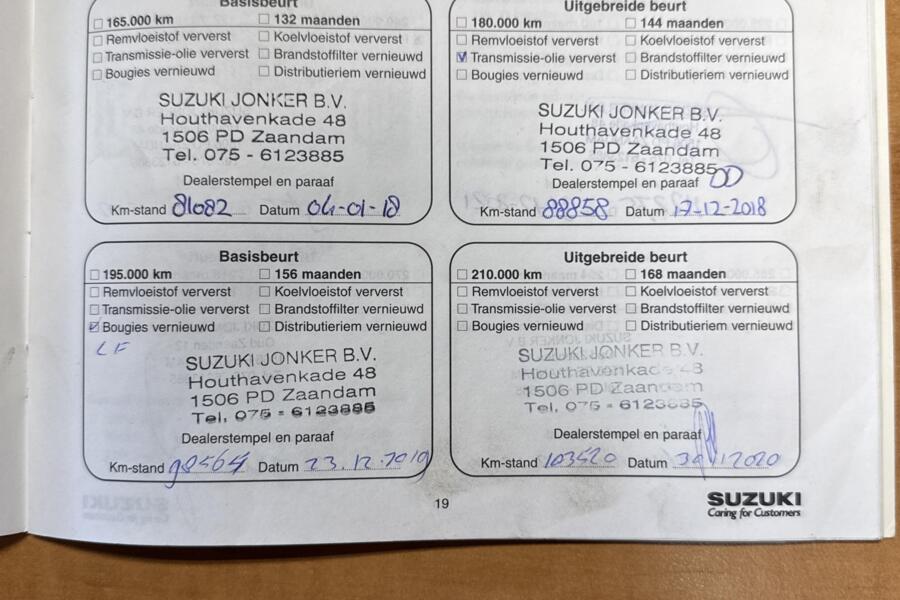 Basisbeurt
☐ 165.000 km ☐ 132 maanden
☐ Remvloeistof ververst ☐ Koelvloeistof ververst
☐ Transmissie-olie ververst ☐ Brandstoffilter vernieuwd
☐ Bougies vernieuwd ☐ Distributieriem vernieuwd
SUZUKI JONKER B.V.
Houthavenkade 48
1506 PD Zaandam
Tel. 075 - 6123885
Dealerstempel en paraaf
Km-stand 81082 Datum 04-01-18
Uitgebreide beurt
☐ 180.000 km ☐ 144 maanden
☐ Remvloeistof ververst ☐ Koelvloeistof ververst
☑ Transmissie-olie ververst ☐ Brandstoffilter vernieuwd
☐ Bougies vernieuwd ☐ Distributieriem vernieuwd
SUZUKI JONKER B.V.
Houthavenkade 48
1506 PD Zaandam
Tel. 075 - 6123885
Dealerstempel en paraaf
Km-stand 88858 Datum 17-12-2018
Basisbeurt
☐ 195.000 km ☐ 156 maanden
☐ Remvloeistof ververst ☐ Koelvloeistof ververst
☐ Transmissie-olie ververst ☐ Brandstoffilter vernieuwd
☑ Bougies vernieuwd ☐ Distributieriem vernieuwd
SUZUKI JONKER B.V.
Houthavenkade 48
1506 PD Zaandam
Tel. 075 - 6123885
Dealerstempel en paraaf
Km-stand 98564 Datum 23.12.2019
Uitgebreide beurt
☐ 210.000 km ☐ 168 maanden
☐ Remvloeistof ververst ☐ Koelvloeistof ververst
☐ Transmissie-olie ververst ☐ Brandstoffilter vernieuwd
☐ Bougies vernieuwd ☐ Distributieriem vernieuwd
SUZUKI JONKER B.V.
Houthavenkade 48
1506 PD Zaandam
Tel. 075 - 6123885
Dealerstempel en paraaf
Km-stand 103520 Datum
19
SUZUKI
Caring for Customers